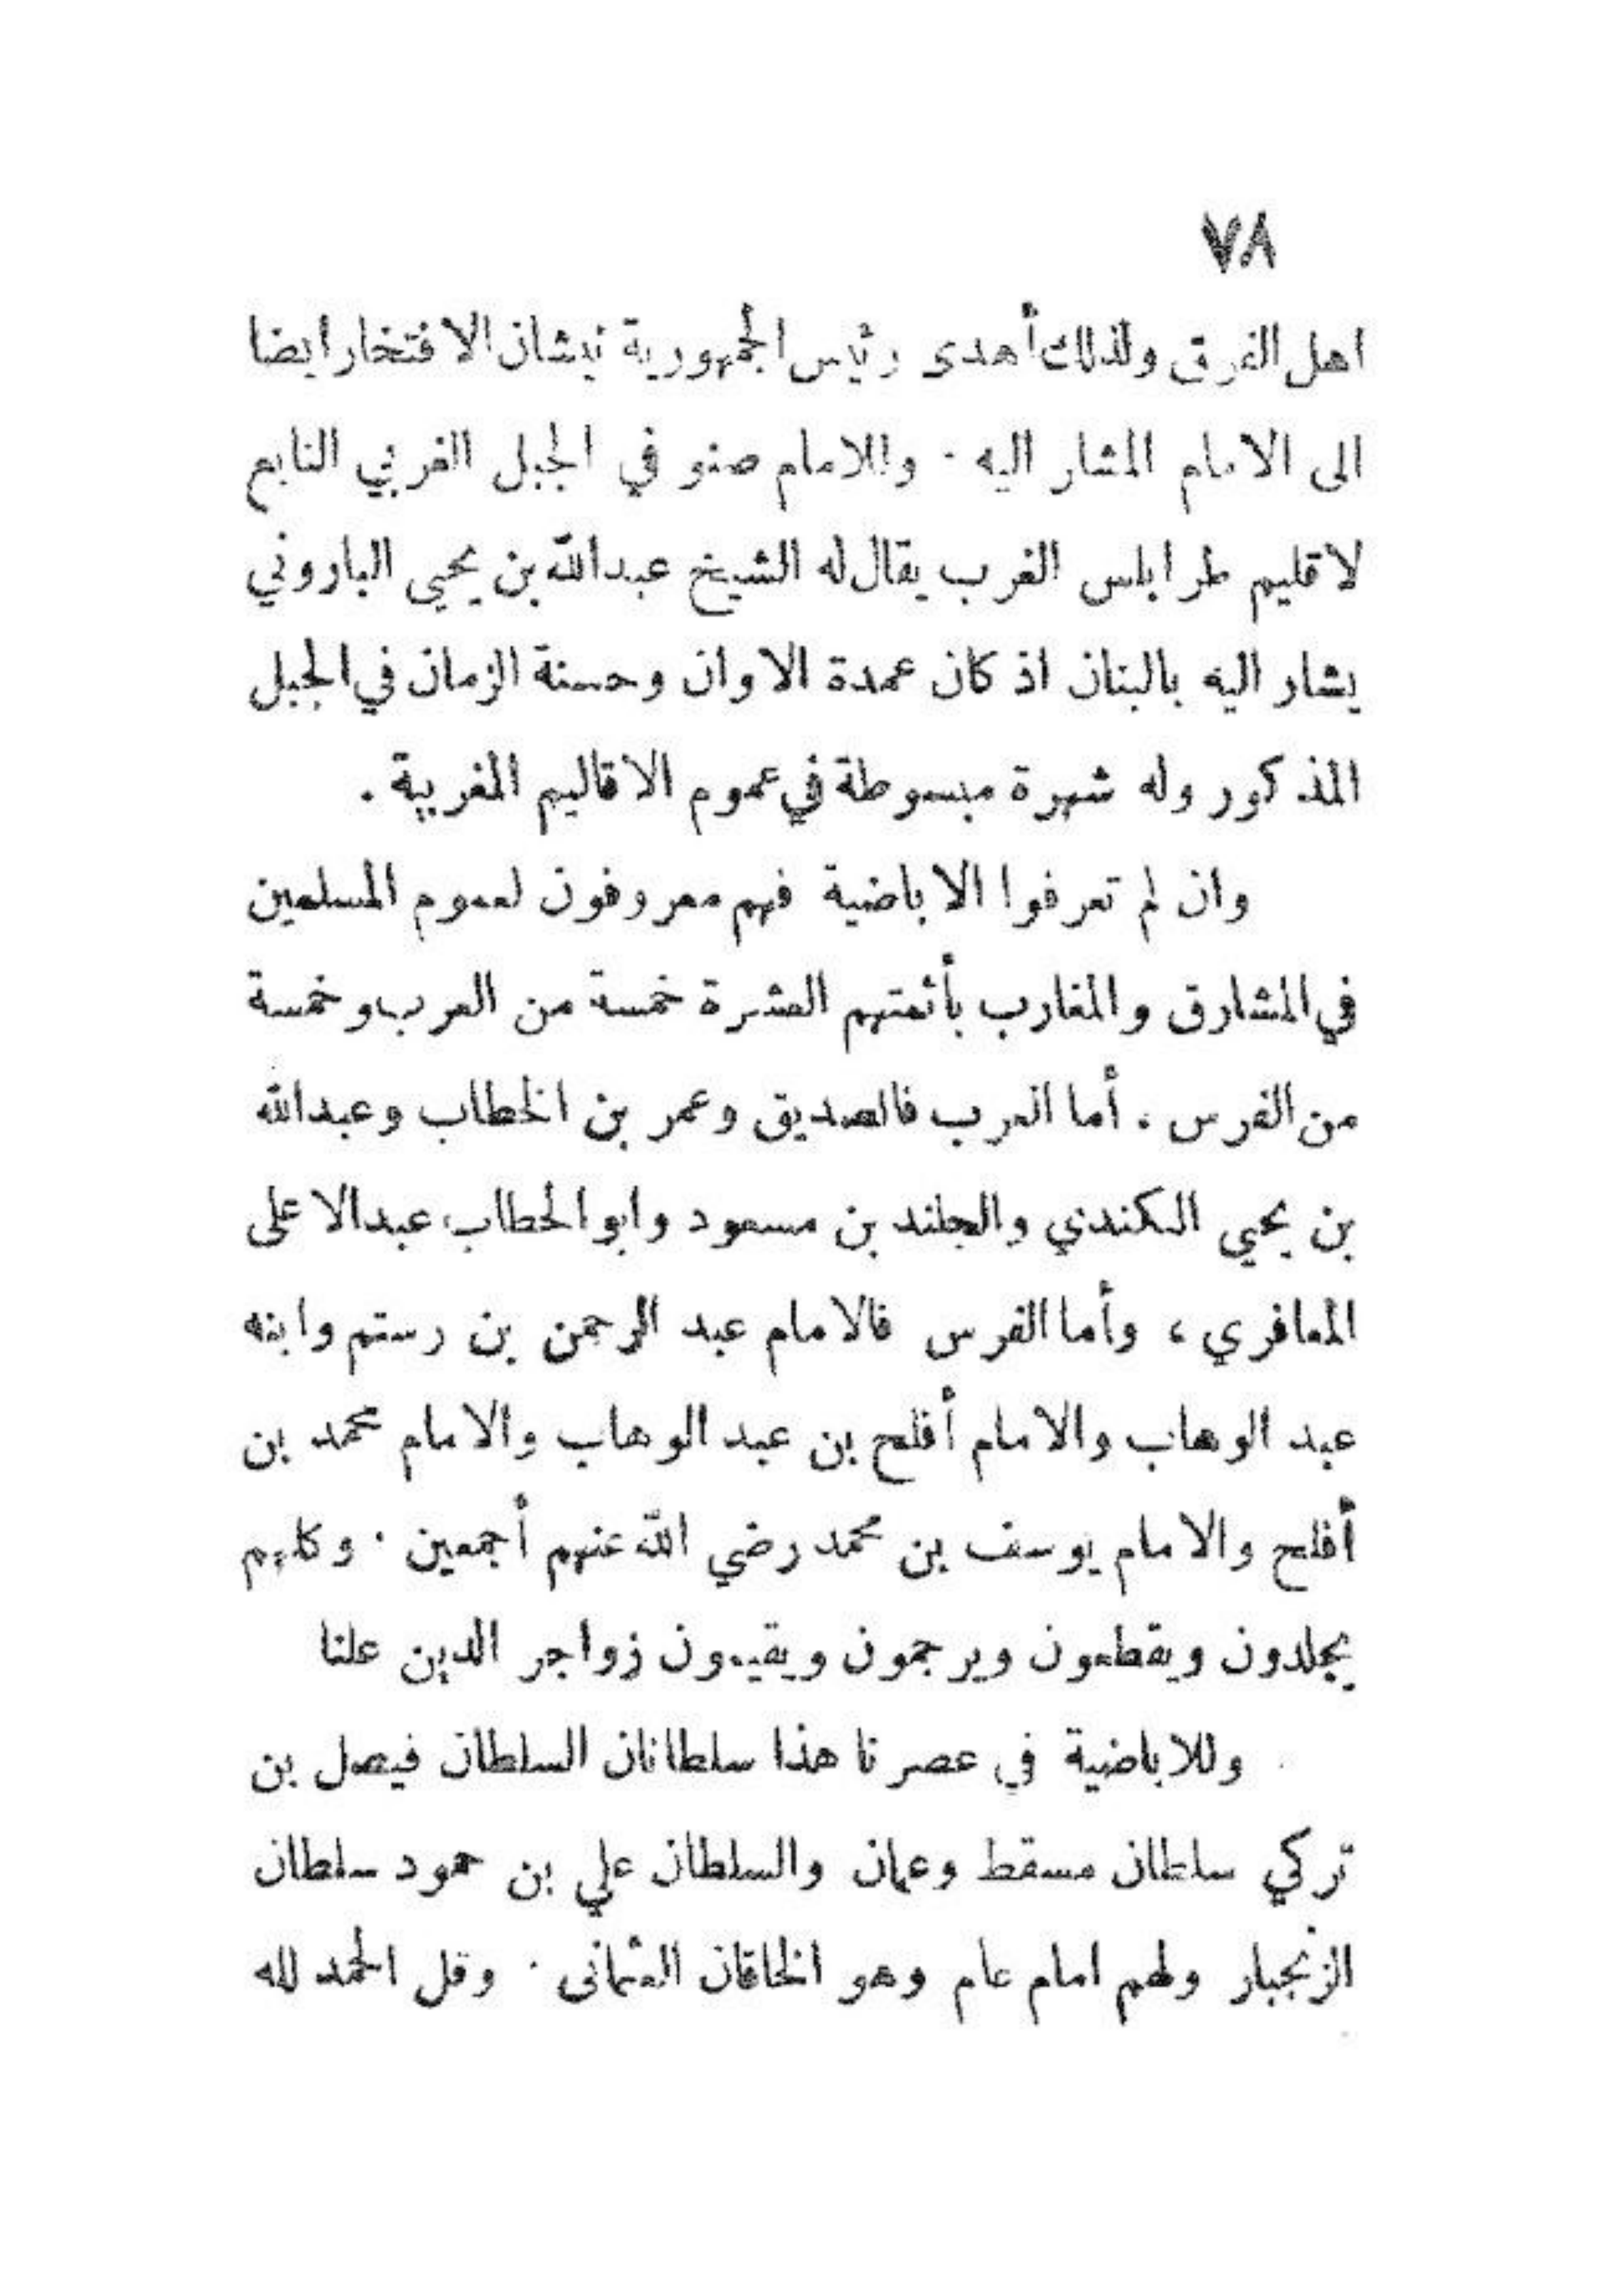 ٧٨
اهل الفرق ولذلك أهدى رئيس الجمهورية نيشان الافتخار ايضا
الى الامام المشار اليه . وللامام صنو في الجبل الغربي التابع
لاقليم طرابلس الغرب يقال له الشيخ عبدالله بن يحيى الباروني
يشار اليه بالبنان اذ كان عمدة الاوان وحسنة الزمان في الجبل
المذكور وله شهرة مبسوطة في عموم الاقاليم المغربية .
وان لم تعرفوا الاباضية فهم معروفون لعموم المسلمين
في المشارق والمغارب بأئمتهم العشرة خمسة من العرب وخمسة
من الفرس . أما العرب فالصديق وعمر بن الخطاب وعبدالله
بن يحيى الكندي والجلند بن مسعود وابو الخطاب عبدالاعلى
المعافري ، وأما الفرس فالامام عبد الرحمن بن رستم وابنه
عبد الوهاب والامام أفلح بن عبد الوهاب والامام محمد بن
أفلح والامام يوسف بن محمد رضي الله عنهم أجمعين . وكلهم
يجلدون ويقطعون ويرجمون ويقيمون زواجر الدين علنا
وللاباضية في عصرنا هذا سلطانان السلطان فيصل بن
تركي سلطان مسقط وعمان والسلطان علي بن حمود سلطان
الزنجبار ولهم امام عام وهو الخاقان العثمانى . وقل الحمد لله